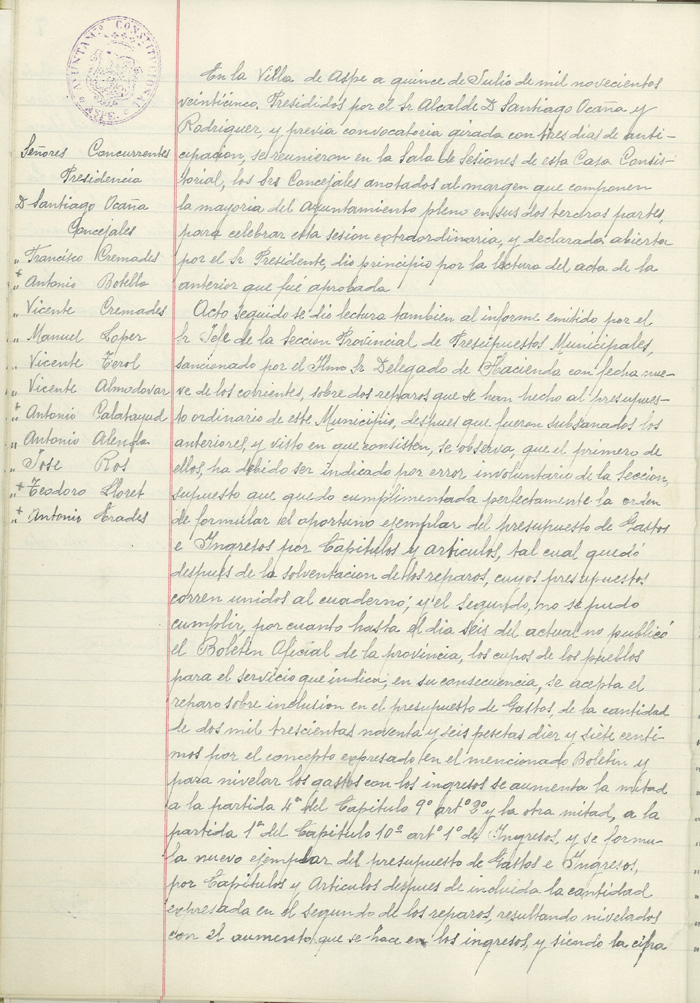 AYUNTAMTº CONSTITUCIONAL
ASPE
Señores Concurrentes
Presidencia
D. Santiago Ocaña
Concejales
" Francisco Cremades
" Antonio Botella
" Vicente Cremades
" Manuel Loper
" Vicente Terol
" Vicente Almodovar
" Antonio Calatayud
" Antonio Alenda
" Jose Ros
" Teodoro Lloret
" Antonio Prades
En la Villa de Aspe a quince de Julio de mil novecientos
veinticinco. Presididos por el Sr Alcalde D. Santiago Ocaña y
Rodriguez, y previa convocatoria girada con tres dias de anti-
cipacion, se reunieron en la Sala de Sesiones de esta Casa Consis-
torial, los Srs Concejales anotados al margen que componen
la mayoria del Ayuntamiento pleno en sus dos terceras partes,
para celebrar esta sesión extraordinaria, y declarada abierta
por el Sr Presidente, dio principio por la lectura del acta de la
anterior que fué aprobada
Acto seguido se dio lectura tambien al informe emitido por el
Sr Jefe de la Seccion Provincial de Presupuestos Municipales,
sancionado por el Ilmo Sr Delegado de Hacienda con fecha nue-
ve de los corrientes, sobre dos reparos que se han hecho al presupues-
to ordinario de este Municipio, despues que fueron subsanados los
anteriores, y visto en que consisten, se observa, que el primero de
ellos, ha debido ser indicado por error involuntario de la Seccion,
supuesto que quedo cumplimentada perfectamente la orden
de formular el oportuno ejemplar del presupuesto de Gastos
e Ingresos por Capitulos y articulos, tal cual quedó
despues de la solventacion de los reparos, cuyos presupuestos
corren unidos al cuaderno; y el segundo, no se pudo
cumplir, por cuanto hasta el dia seis del actual no publicó
el Boletin Oficial de la provincia, los cupos de los pueblos
para el servicio que indica; en su consecuencia, se acepta el
reparo sobre inclusion en el presupuesto de Gastos, de la cantidad
de dos mil trescientas noventa y seis pesetas diez y siete centi-
mos por el concepto expresado en el mencionado Boletin y
para nivelar los gastos con los ingresos se aumenta la mitad
a la partida 4ª del Capitulo 9º artº 3º y la otra mitad, a la
partida 1ª del Capitulo 10º artº 1º de Ingresos, y se formu-
la nuevo ejemplar del presupuesto de Gastos e Ingresos,
por Capitulos y Articulos despues de incluida la cantidad
expresada en el segundo de los reparos, resultando nivelados
con el aumento que se hace en los ingresos, y siendo la cifra